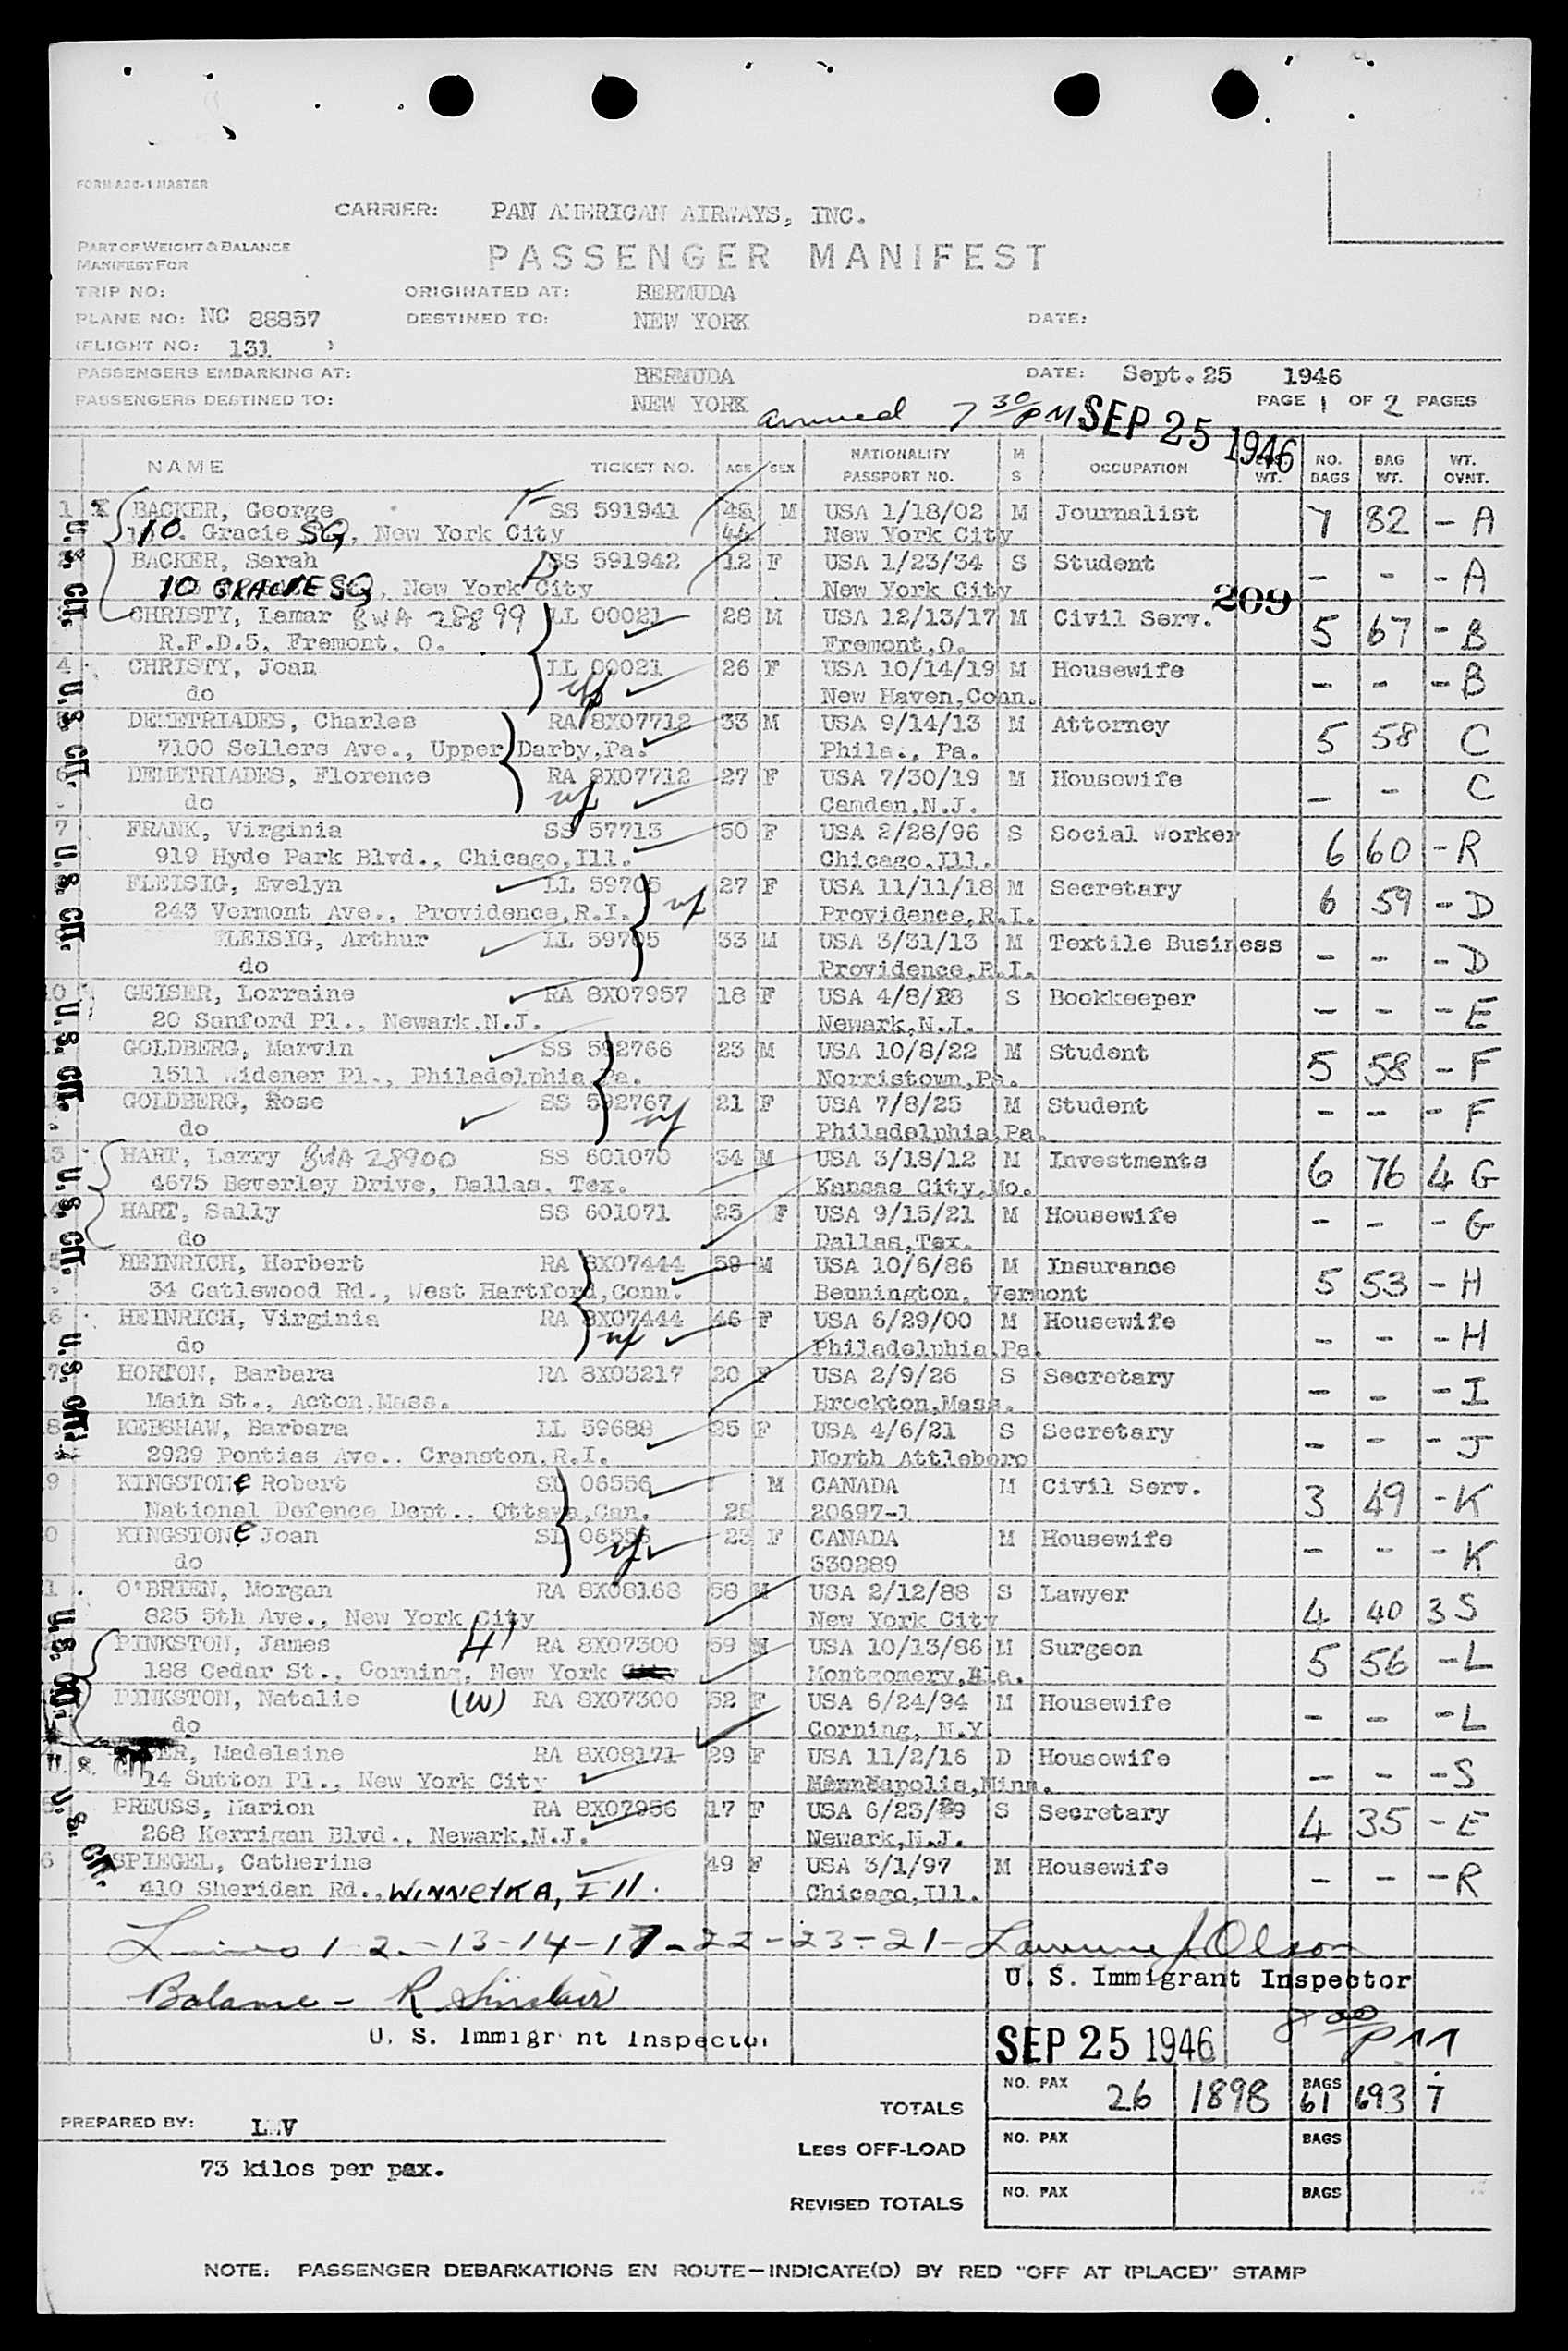 FORM ABC-1 MASTER
CARRIER: PAN AMERICAN AIRWAYS, INC.
PART OF WEIGHT & BALANCE
MANIFEST FOR
PASSENGER MANIFEST
TRIP NO: ORIGINATED AT: BERMUDA
PLANE NO: NC 88857 DESTINED TO: NEW YORK DATE:
(FLIGHT NO: 131 )
PASSENGERS EMBARKING AT: BERMUDA DATE: Sept. 25 1946
PASSENGERS DESTINED TO: NEW YORK PAGE 1 OF 2 PAGES
arrived 7 30/PM SEP 25 1946
NAME TICKET NO. AGE SEX NATIONALITY PASSPORT NO. M S OCCUPATION WT. NO. BAGS BAG WT. WT. OVNT.
1 X BACKER, George SS 591941 M USA 1/18/02 M Journalist 7 82 - A
10 Gracie SQ, New York City 44 New York City
BACKER, Sarah SS 591942 12 F USA 1/23/34 S Student - - - A
10 GRACIE SQ, New York City New York City
209
CHRISTY, Lamar BWA 28899 LL 00021 28 M USA 12/13/17 M Civil Serv. 5 67 - B
R.F.D.5, Fremont, O. Fremont,O.
4 CHRISTY, Joan LL 00021 26 F USA 10/14/19 M Housewife - - - B
do New Haven,Conn.
DEMETRIADES, Charles RA 8X07712 33 M USA 9/14/13 M Attorney 5 58 C
7100 Sellers Ave., Upper Darby,Pa. Phila., Pa.
DEMETRIADES, Florence RA 8X07712 27 F USA 7/30/19 M Housewife - - C
do Camden,N.J.
7 FRANK, Virginia SS 57713 50 F USA 2/28/96 S Social Worker 6 60 - R
919 Hyde Park Blvd., Chicago,Ill. Chicago,Ill.
FLEISIG, Evelyn LL 59705 27 F USA 11/11/18 M Secretary 6 59 - D
243 Vermont Ave., Providence,R.I. Providence,R.I.
FLEISIG, Arthur LL 59705 33 M USA 3/31/13 M Textile Business - - - D
do Providence,R.I.
0 GEISER, Lorraine RA 8X07957 18 F USA 4/8/28 S Bookkeeper - - - E
20 Sanford Pl., Newark,N.J. Newark,N.J.
GOLDBERG, Marvin SS 592766 23 M USA 10/8/22 M Student 5 58 - F
1511 Widener Pl., Philadelphia,Pa. Norristown,Pa.
GOLDBERG, Rose SS 592767 21 F USA 7/8/25 M Student - - - F
do Philadelphia,Pa.
3 HART, Larry BWA 28900 SS 601070 34 M USA 3/18/12 M Investments 6 76 4 G
4675 Beverley Drive, Dallas, Tex. Kansas City,Mo.
HART, Sally SS 601071 25 F USA 9/15/21 M Housewife - - - G
do Dallas,Tex.
5 HEINRICH, Herbert RA 8X07444 59 M USA 10/6/86 M Insurance 5 53 - H
34 Catlswood Rd., West Hartford,Conn. Bennington, Vermont
6 HEINRICH, Virginia RA 8X07444 46 F USA 6/29/00 M Housewife - - - H
do Philadelphia,Pa.
7 HORTON, Barbara RA 8X03217 20 F USA 2/9/26 S Secretary - - - I
Main St., Acton,Mass. Brockton,Mass.
8 KERSHAW, Barbara LL 59688 25 F USA 4/6/21 S Secretary - - - J
2929 Pontias Ave., Cranston,R.I. North Attleboro
9 KINGSTONe Robert 06556 M CANADA M Civil Serv. 3 49 - K
National Defence Dept., Ottawa,Can. 28 20697-1
0 KINGSTONe Joan 06556 23 F CANADA M Housewife - - - K
do 330289
1 O'BRIEN, Morgan RA 8X08168 58 M USA 2/12/88 S Lawyer 4 40 3 S
825 5th Ave., New York City New York City
PINKSTON, James H RA 8X07300 59 M USA 10/13/86 M Surgeon 5 56 - L
188 Cedar St., Corning, New York Montgomery,Ala.
PINKSTON, Natalie (W) RA 8X07300 52 F USA 6/24/94 M Housewife - - - L
do Corning, N.Y.
Madelaine RA 8X08171 29 F USA 11/2/16 D Housewife - - - S
14 Sutton Pl., New York City Minneapolis,Minn.
5 PREUSS, Marion RA 8X07956 17 F USA 6/23/29 S Secretary 4 35 - E
268 Kerrigan Blvd., Newark,N.J. Newark,N.J.
6 SPIEGEL, Catherine 49 F USA 3/1/97 M Housewife - - - R
410 Sheridan Rd., WINNETKA, Ill. Chicago,Ill.
U. S. CIT.
U. S. CIT.
U. S. CIT.
U. S. CIT.
U. S. CIT.
U. S. CIT.
U. S. CIT.
U. S. CIT.
U. S. CIT.
Lines 1-2-13-14-17-22-23-21- Lawrence J Olson
U. S. Immigrant Inspector
Balance - R Sinclair
U. S. Immigrant Inspector
SEP 25 1946 8 00/PM
TOTALS NO. PAX 26 1898 BAGS 61 693 7
PREPARED BY: LMV
LESS OFF-LOAD NO. PAX BAGS
73 kilos per pax.
REVISED TOTALS NO. PAX BAGS
NOTE: PASSENGER DEBARKATIONS EN ROUTE—INDICATE(D) BY RED "OFF AT (PLACE)" STAMP